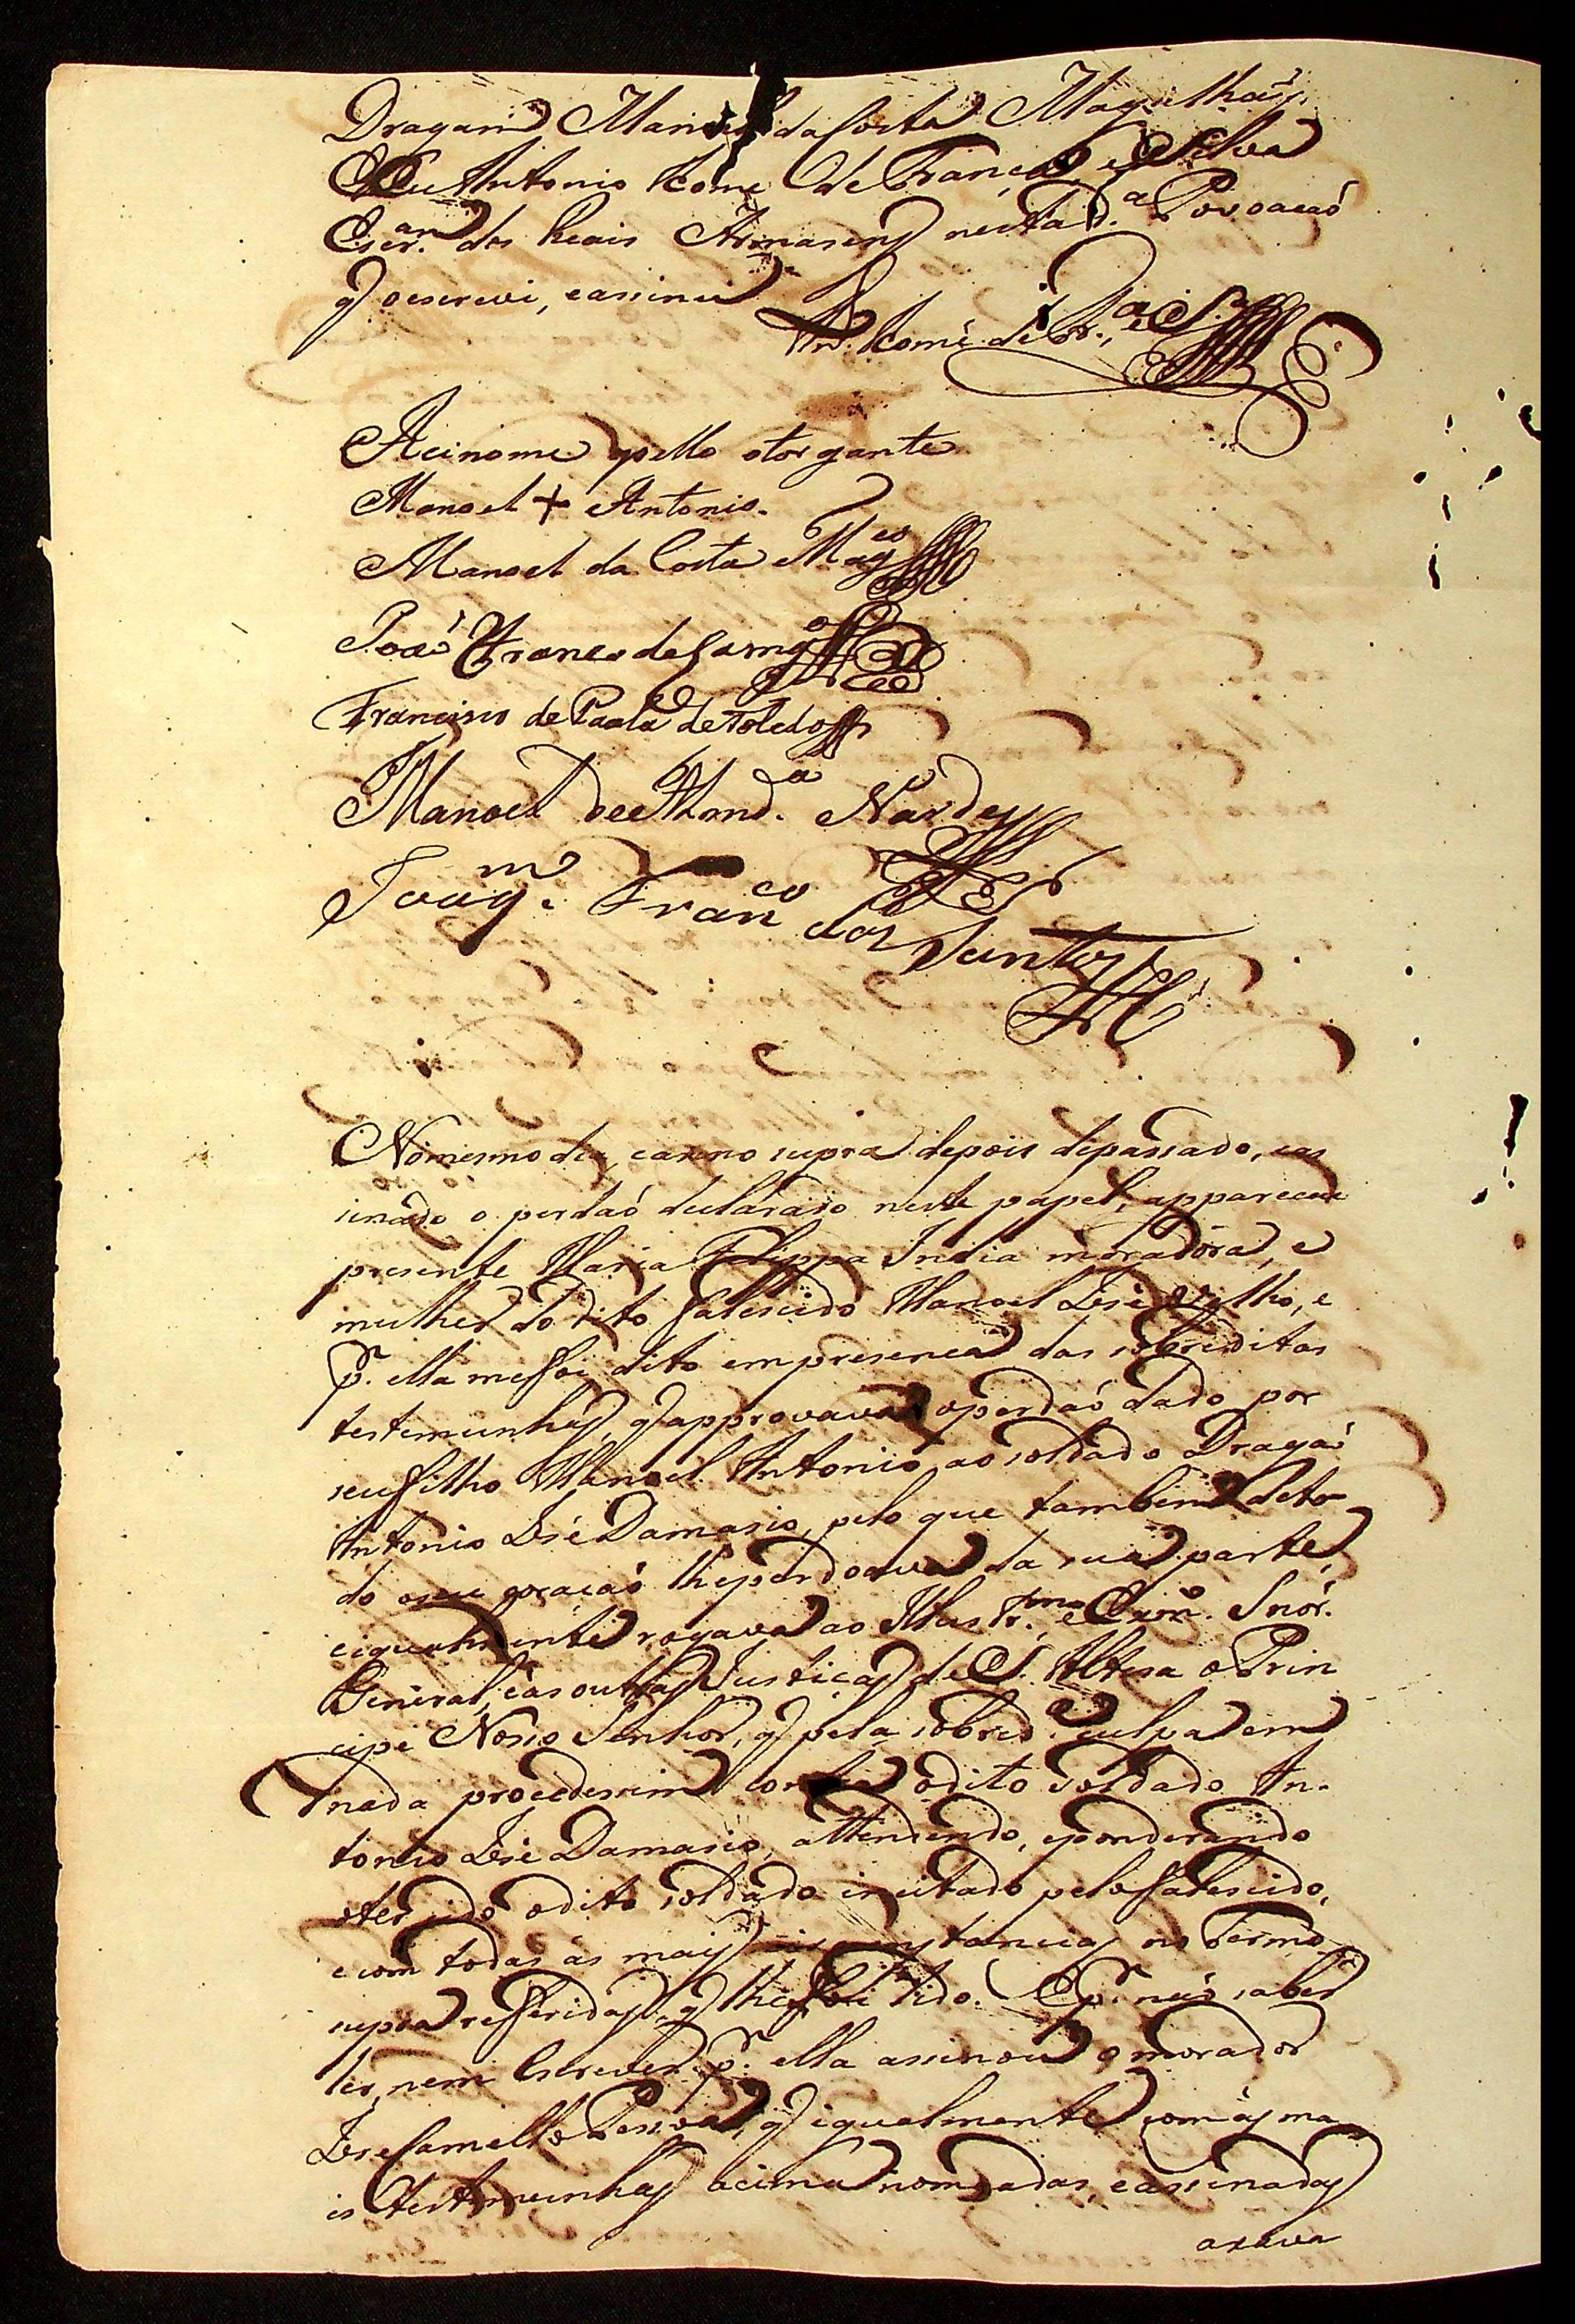 Dragam Manoel da Costa Magalhaẽs,
Eu Antonio Thomé de França e Silva
Escr.am dos Reais Armasens nesta d.a Povoacaõ
q̃ o escrevi, e assinei
An.to Thomé de Fr.ca e S.a
Acinome pello otorgante
Manoel + Antonio.
Manoel da Costa Mag.es
Joaõ Franco de Camg.o
Francisco de Paula de Toledo
Manoel de Almd.a Nardes
Joaq.m Fran.co dos Santos
No mesmo dia, e anno supra depois de passado, e as
sinado o perdaõ declarado neste papel, appareceu
presente Maria Filippa India moradora, e
mulher do dito falescido Manoel José Velho, e
p.r ella me foi dito em presenca das sobreditas
testemunhas, q̃ approvava o perdaõ dado por
seu filho Manoel Antonio ao soldado Dragaõ
Antonio José Damasio, pelo que tambem de to
do o seu coracaõ lhe perdoava da sua parte,
e igualmente rogava ao Illustr.mo e Exm.o Snór.
General, e ás outras Justiças de S. Altesa o Prin
cipe Nosso Senhor, q̃ pela sobred.a culpa em
nada procedessem contra o dito soldado An-
tonio José Damasio, attendendo, e ponderando
o ter sido o dito soldado incitado pelo falescido,
e com todas as mais circunstancias no Termo
supra refferidas, q̃ lhe foi lido. E p.r naõ saber
ler, nem escrever p.r ella assinou o morador
José Camello Pessoa, q̃ igualmente com as ma
is testemunhas acima nomeadas, e assinadas